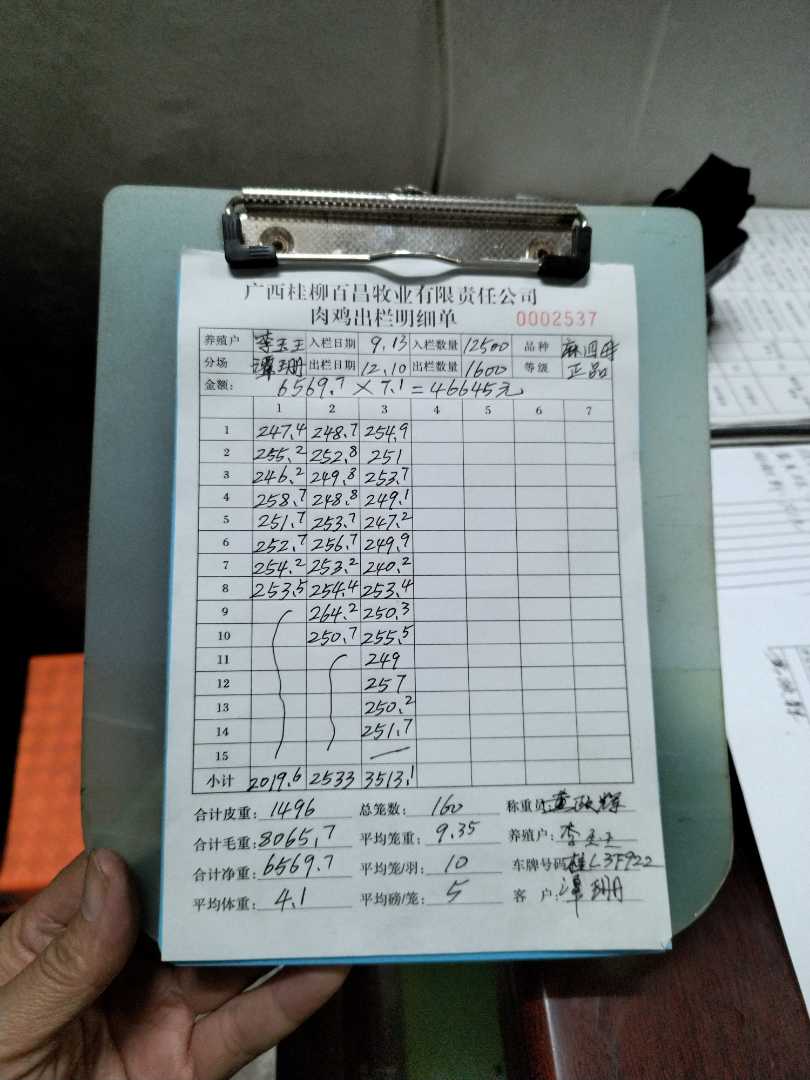 广西桂柳百昌牧业有限责任公司
肉鸡出栏明细单 0002537
养殖户 李玉王 入栏日期 9.13 入栏数量 12500 品种 麻四
分场 谭珊 出栏日期 12.10 出栏数量 1600 等级 正品
金额: 6569.7 × 7.1 = 46645元
1 2 3 4 5 6 7
1 247.4 248.7 254.9
2 255.2 252.8 251
3 246.2 249.8 253.7
4 258.7 248.8 249.1
5 251.7 253.7 247.2
6 252.7 256.7 249.9
7 254.2 253.2 240.2
8 253.5 254.4 253.4
9 264.2 250.3
10 250.7 255.5
11 249
12 257
13 250.2
14 251.7
15 —
小计 2019.6 2533 3513.1
合计皮重: 1496 总笼数: 160 称重员:
合计毛重: 8065.7 平均笼重: 9.35 养殖户: 李玉王
合计净重: 6569.7 平均笼/羽: 10 车牌号码: 桂L3F922
平均体重: 4.1 平均磅/笼: 5 客户: 谭珊